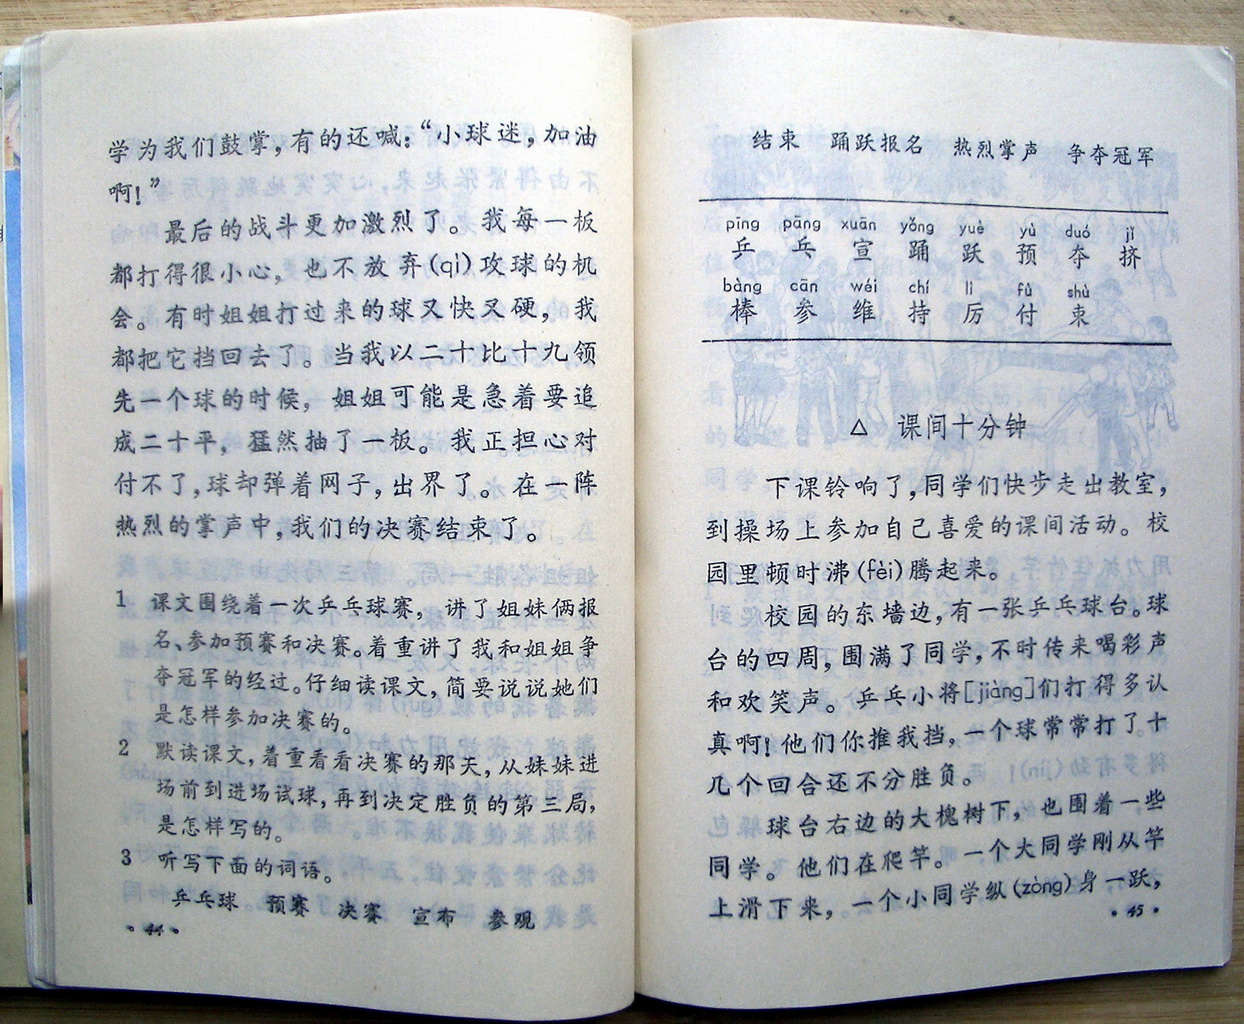 学为我们鼓掌，有的还喊：“小球迷，加油
啊！”
最后的战斗更加激烈了。我每一板
都打得很小心，也不放弃(qì)攻球的机
会。有时姐姐打过来的球又快又硬，我
都把它挡回去了。当我以二十比十九领
先一个球的时候，姐姐可能是急着要追
成二十平，猛然抽了一板。我正担心对
付不了，球却弹着网子，出界了。在一阵
热烈的掌声中，我们的决赛结束了。
1 课文围绕着一次乒乓球赛，讲了姐妹俩报
名、参加预赛和决赛。着重讲了我和姐姐争
夺冠军的经过。仔细读课文，简要说说她们
是怎样参加决赛的。
2 默读课文，着重看看决赛的那天，从妹妹进
场前到进场试球，再到决定胜负的第三局，
是怎样写的。
3 听写下面的词语。
乒乓球 预赛 决赛 宣布 参观
·44·
结束 踊跃报名 热烈掌声 争夺冠军
pīng pāng xuān yǒng yuè yù duó jǐ
乒 乓 宣 踊 跃 预 夺 挤
bàng cān wéi chí lì fù shù
棒 参 维 持 厉 付 束
△ 课间十分钟
下课铃响了，同学们快步走出教室，
到操场上参加自己喜爱的课间活动。校
园里顿时沸(fèi)腾起来。
校园的东墙边，有一张乒乓球台。球
台的四周，围满了同学，不时传来喝彩声
和欢笑声。乒乓小将[jiàng]们打得多认
真啊！他们你推我挡，一个球常常打了十
几个回合还不分胜负。
球台右边的大槐树下，也围着一些
同学。他们在爬竿。一个大同学刚从竿
上滑下来，一个小同学纵(zòng)身一跃，
·45·